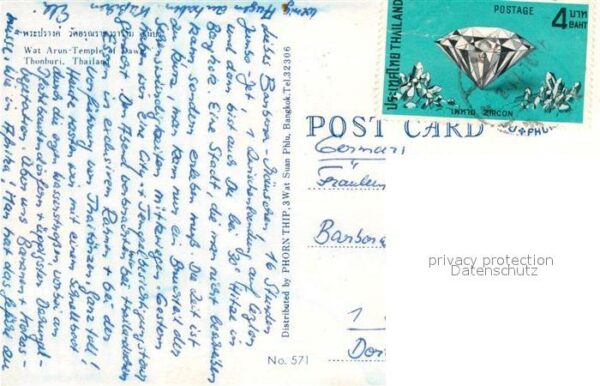 Liebes Barbara-Mäuschen! 16 Stunden
Jumbo-Jet, 1 Zwischenlandung auf Ceylon
und dann bist auch Du bei 30° Hitze in
Bangkok! Eine Stadt, die man nicht beschreiben
kann, sondern erleben muß. Die Zeit ist
zu kurz, man kann nur ein Bruchteil der
Sehenswürdigkeiten mitkriegen. Gestern
eine City + Tempelbesichtigungstour
Den Abend verbrachten wir bei
in exclusivem Rahmen + bei der
von Thaitänzen. Ganz toll!
Heute waren wir mit einem Schnellboot
durch die Wasserstraßen, vorbei an
Pfahlbautendörfern + üppigster Dschungel-
Vegetation. Über uns Bananen + Kokos-
wie in Afrika! Man hat das Gefühl
พระปรางค์ วัดอรุณราชวราราม ธนบุรี
Wat Arun-Temple of Dawn
Thonburi, Thailand
Distributed by PHORN THIP, 3 Wat Suan Phlu, Bangkok, Tel. 32306
No. 571
POST CARD
Germany
Fräulein
Barbara
1
Dor
ประเทศไทย THAILAND
POSTAGE
4 บาท
BAHT
เพทาย ZIRCON
privacy protection
Datenschutz